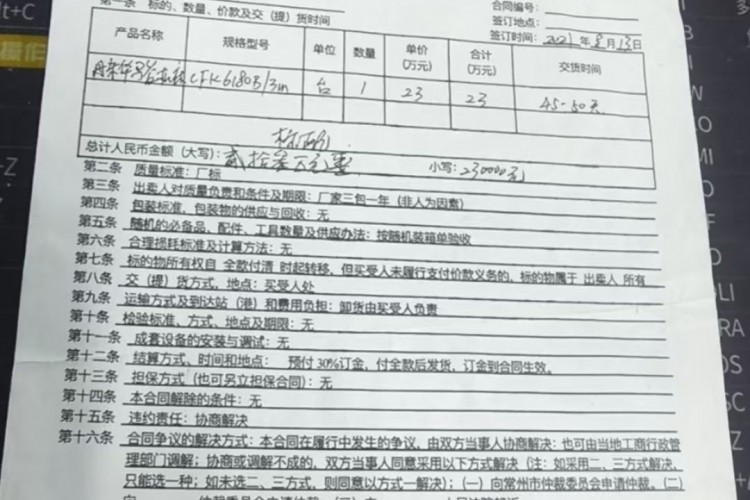 第一条 标的、数量、价款及交（提）货时间
合同编号：
签订地点：
签订时间：2021年8月13日
产品名称 规格型号 单位 数量 单价（万元） 合计（万元） 交货时间
CFK6180B/3m 台 1 23 23 45-50天
总计人民币金额（大写）： 贰拾叁万元整 小写：230000元
第二条 质量标准：厂标
第三条 出卖人对质量负责和条件及期限：厂家三包一年（非人为因素）
第四条 包装标准，包装物的供应与回收：无
第五条 随机的必备品、配件、工具数量及供应办法：按随机装箱单验收
第六条 合理损耗标准及计算方法：无
第七条 标的物所有权自 全款付清 时起转移，但买受人未履行支付价款义务的，标的物属于 出卖人 所有
第八条 交（提）货方式，地点：买受人处
第九条 运输方式及到达站（港）和费用负担：卸货由买受人负责
第十条 检验标准、方式、地点及期限：无
第十一条 成套设备的安装与调试：无
第十二条 结算方式、时间和地点： 预付30%订金，付全款后发货，订金到合同生效。
第十三条 担保方式（也可另立担保合同）：无
第十四条 本合同解除的条件：无
第十五条 违约责任：协商解决
第十六条 合同争议的解决方式：本合同在履行中发生的争议，由双方当事人协商解决：也可由当地工商行政管
理部门调解；协商或调解不成的，双方当事人同意采用以下方式解决（注：如采用二、三方式解决，
只能选一种；如未选二、三方式，则同意以方式一解决）；（一）向常州市仲裁委员会申请仲裁。（二）